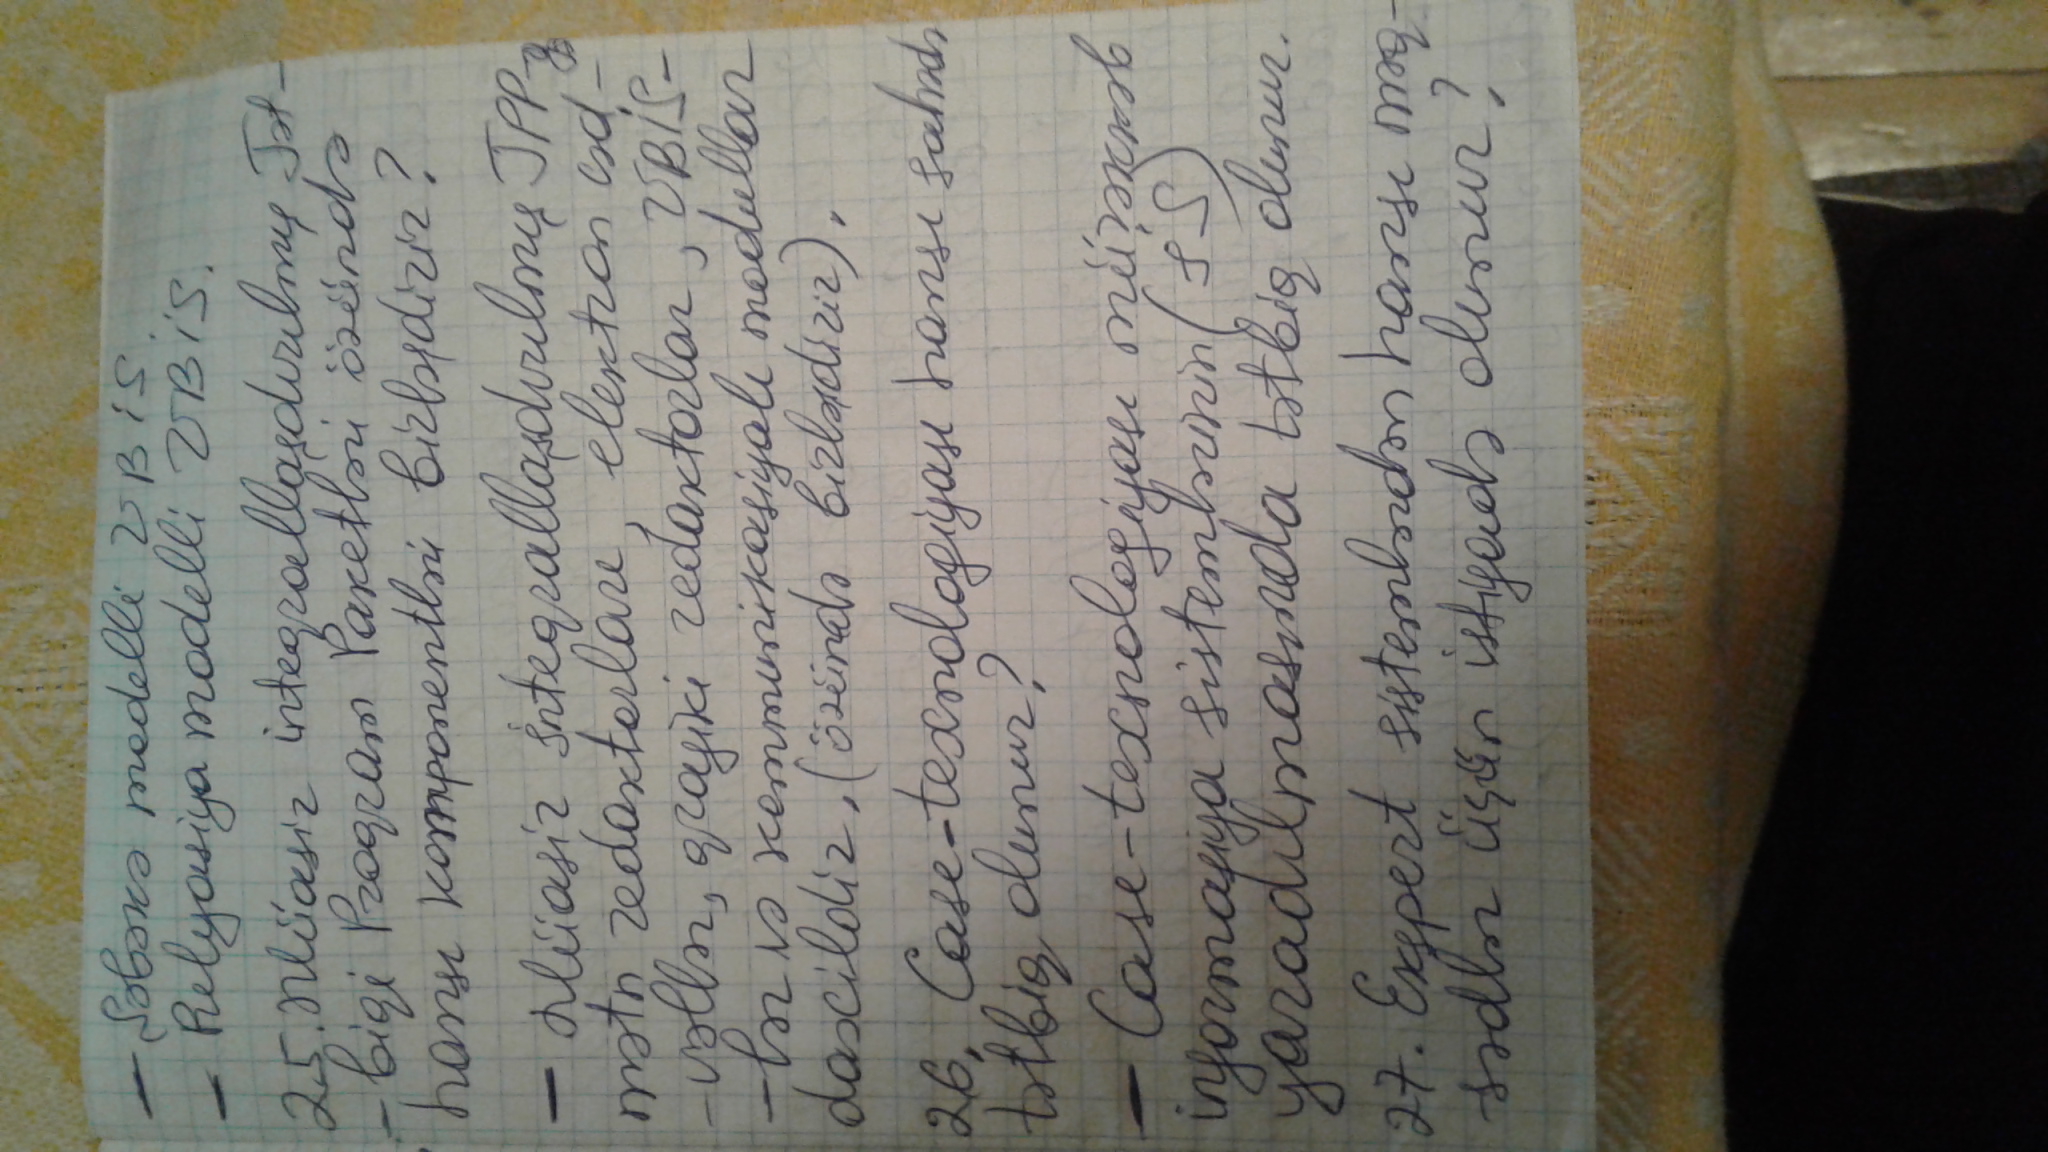 – Şəbəkə modelli VBİS.
– Relyasiya modelli VBİS.
25. Müasir inteqrallaşdırılmış Tət-
-biqi Proqram Paketləri özündə
hansı komponentləri birləşdirir?
– Müasir inteqrallaşdırılmış TPP-yə
mətn redaktorları, elektron cəd-
-vəllər, qrafiki redaktorlar, VBİS-
-lər və kommunikasiyalı modullar
daxildir. (özündə birləşdirir).
26. Case-texnologiyası hansı sahədə
tətbiq olunur?
– Case-texnologiyası mürəkkəb
informasiya sistemlərinin (İS)
yaradılmasında tətbiq olunur.
27. Ekspert sistemlərdən hansı məq-
sədlər üçün istifadə olunur?